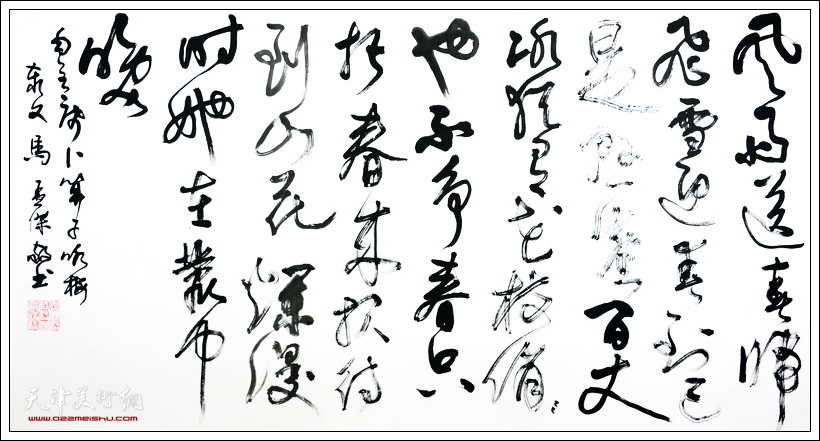 風雨送春歸
飛雪迎春到已
是懸崖百丈
冰犹有花枝俏ミ
也不争春只
把春来报待
到山花爛漫
时她在叢中
笑
毛主席卜算子咏梅
馬孟傑敬书
天津美术网
www.022meishu.com